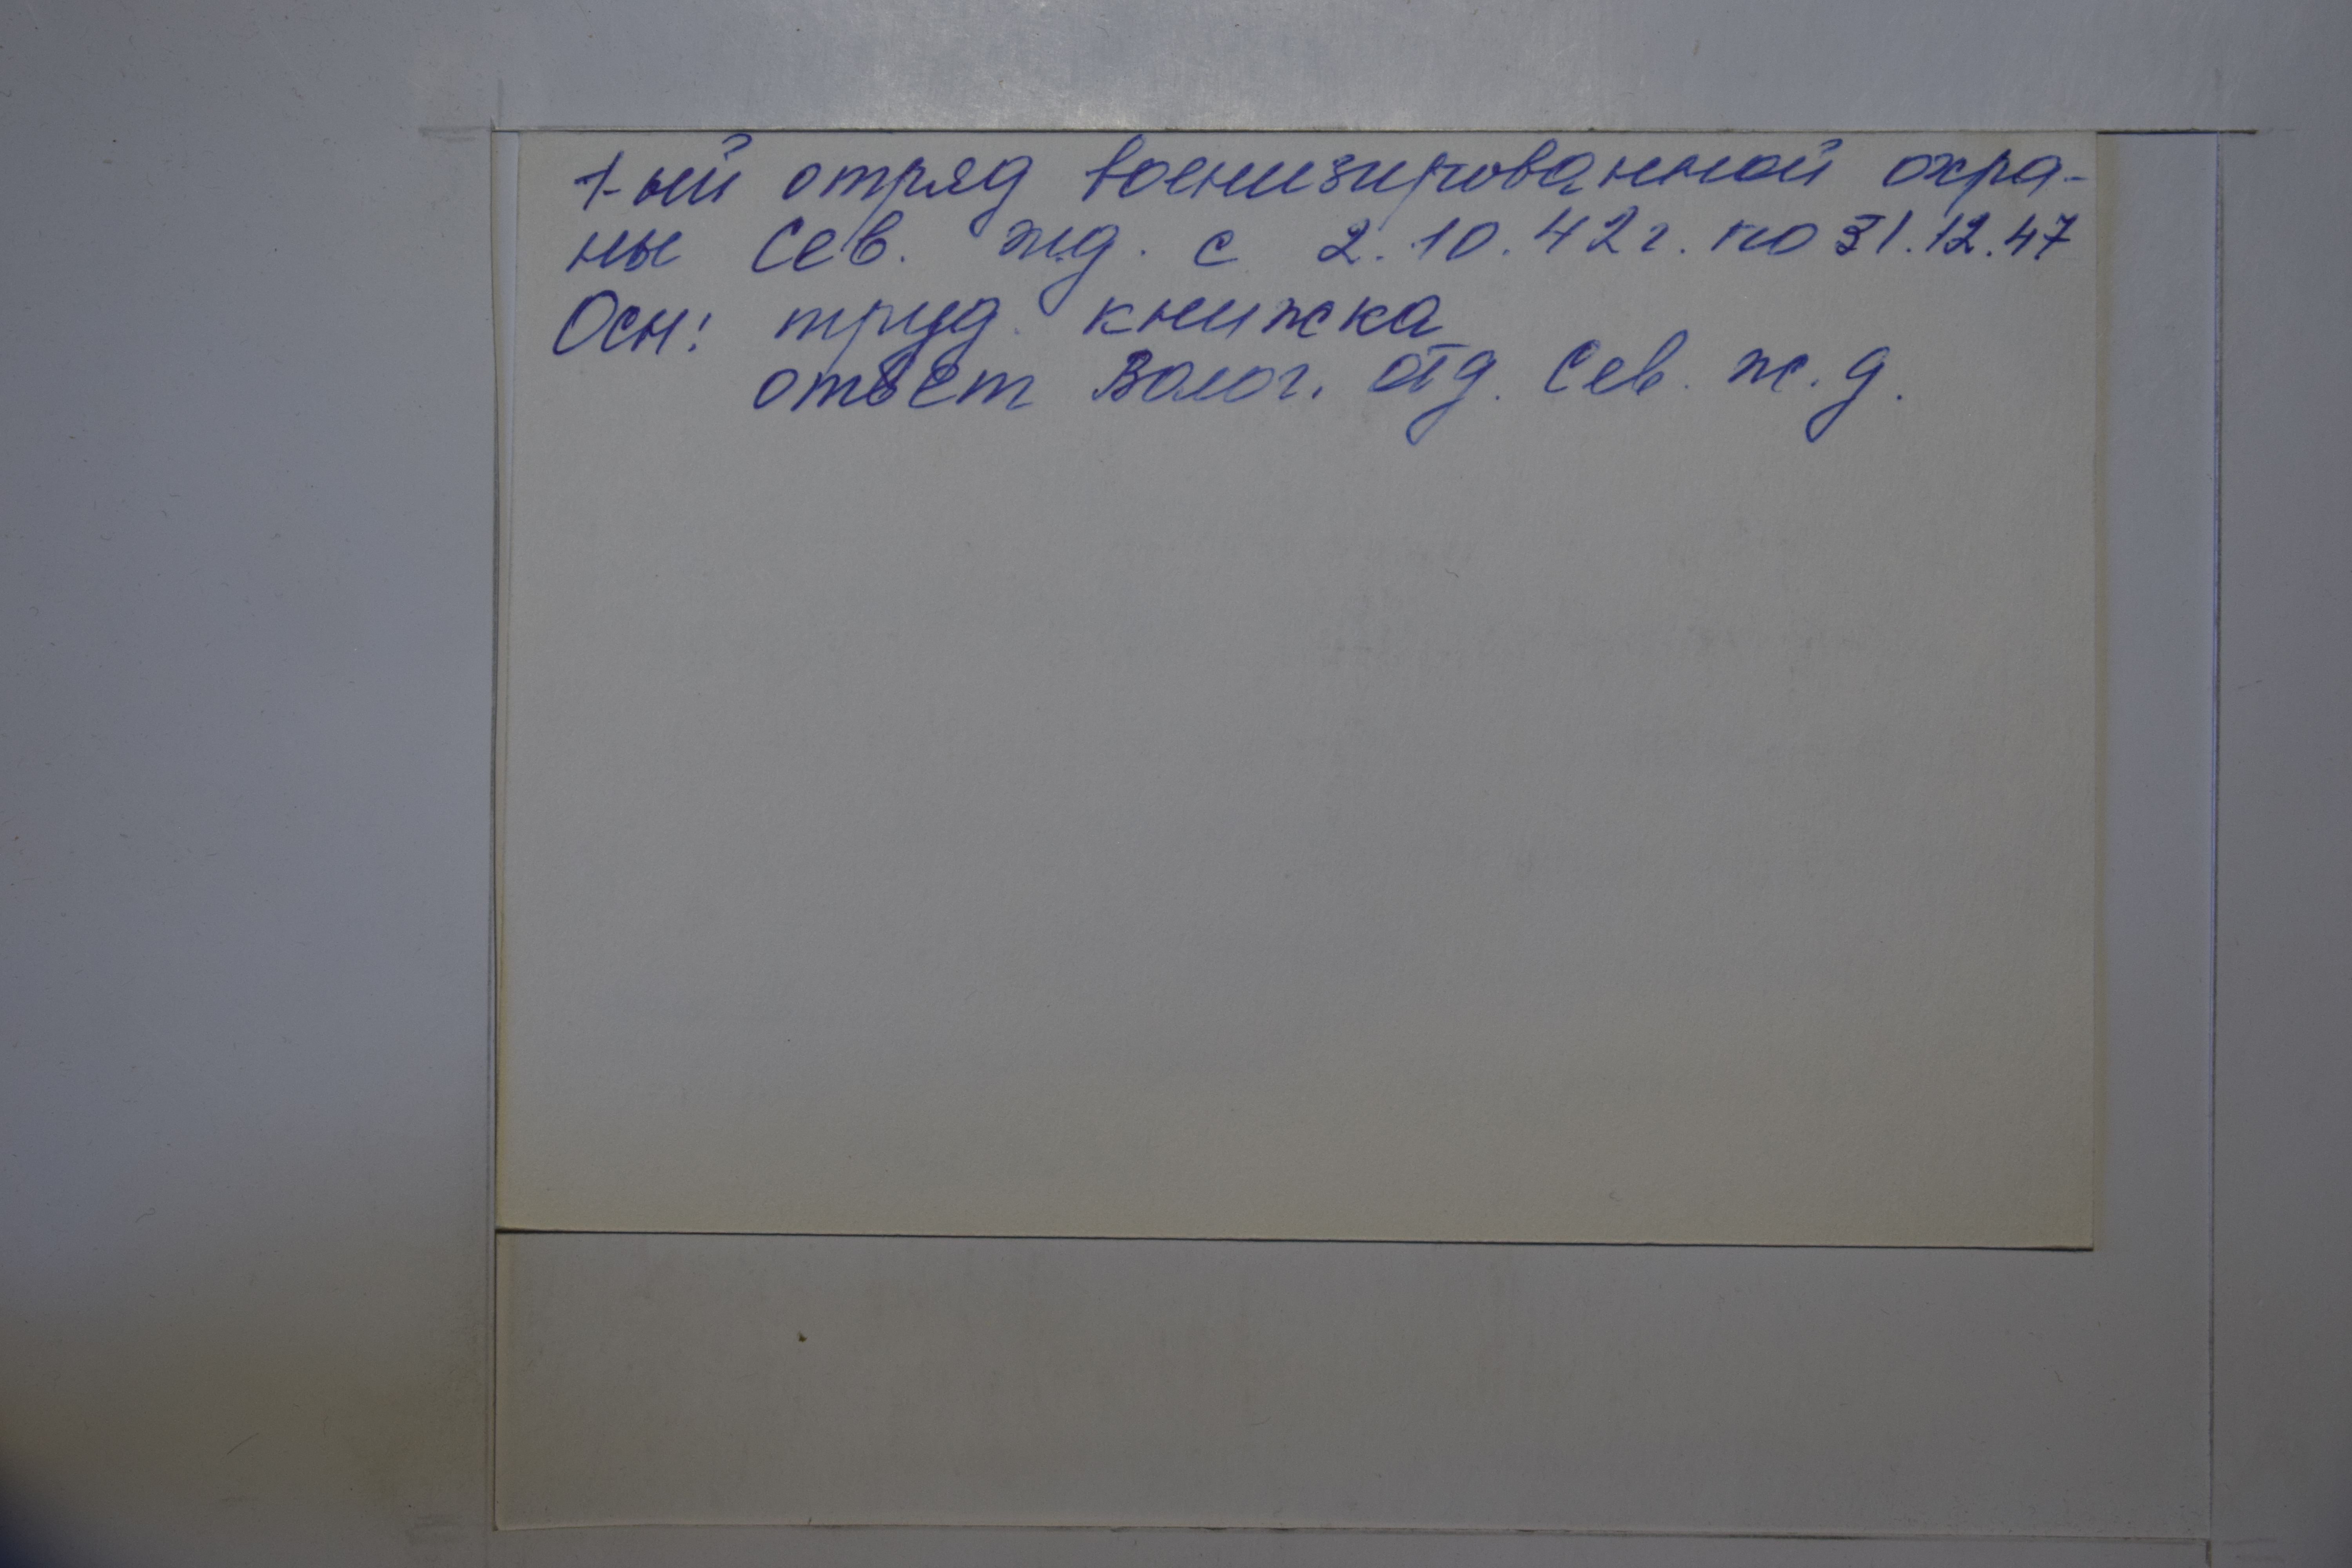 1-ый отряд военизированной охра-
ны Сев. жд. с 2.10.42г. по 31.12.47
Осн: труд. книжка
ответ Волог. отд. Сев. ж.д.